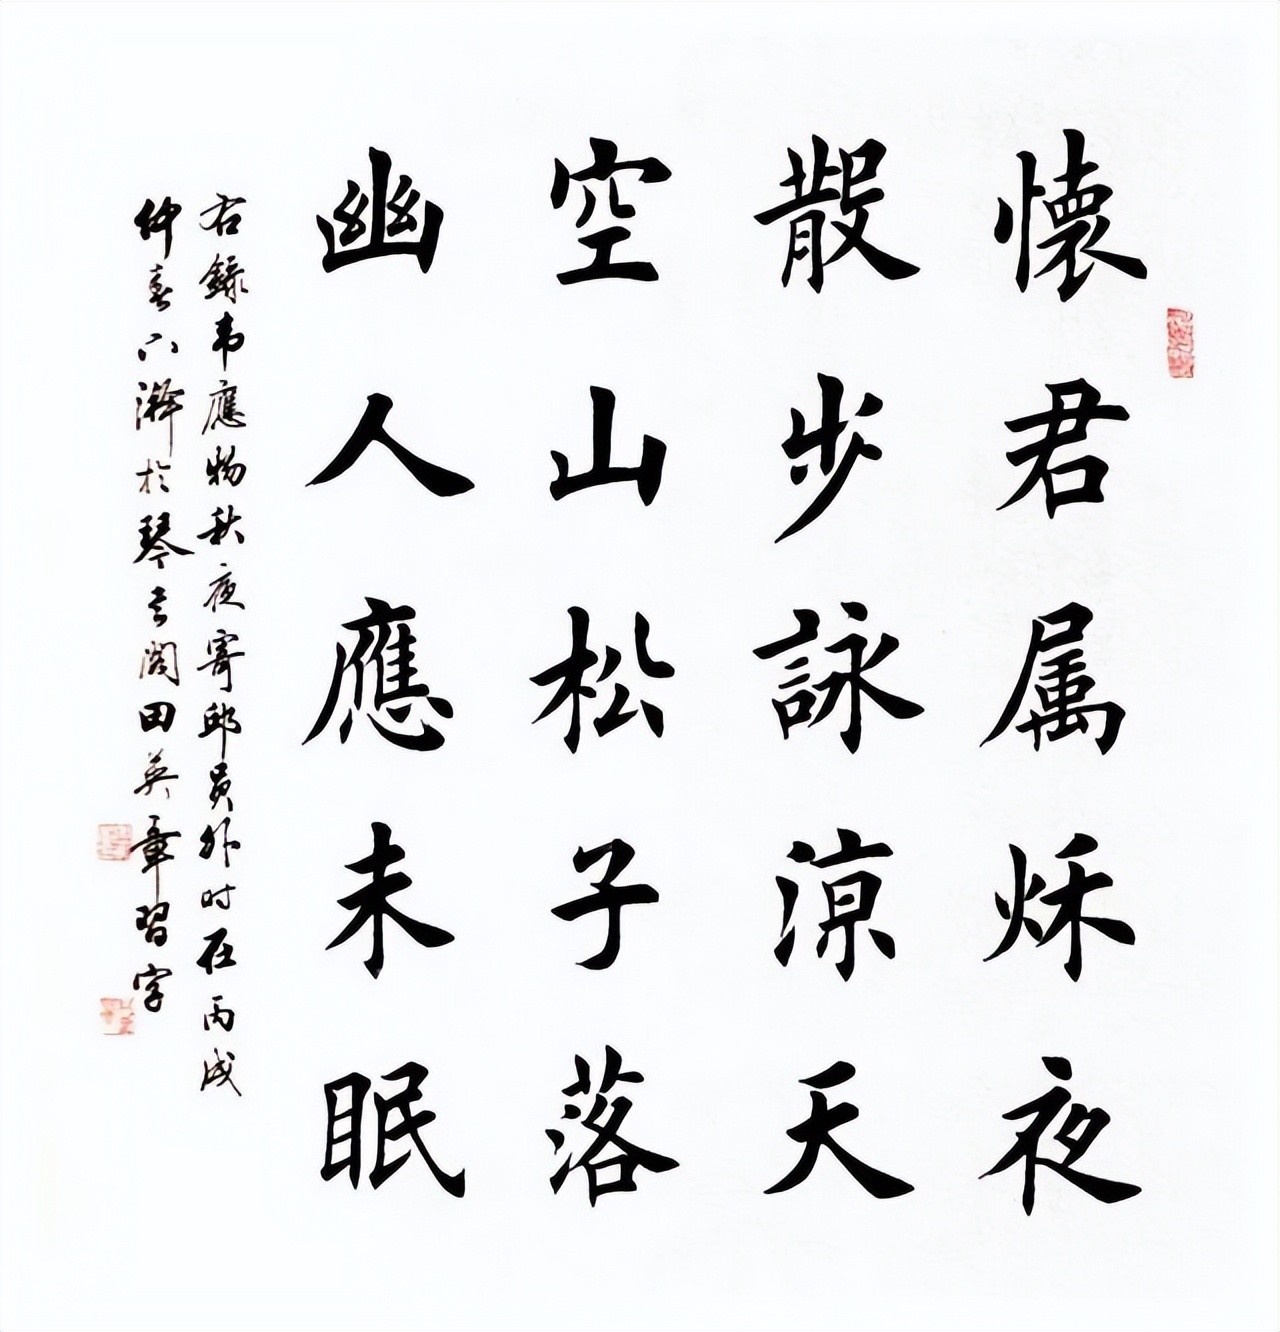 懷君属秌夜
散步詠涼天
空山松子落
幽人應未眠
右録韦應物秋夜寄邱員外时在丙戌
仲春下澣於琴閣田英章習字